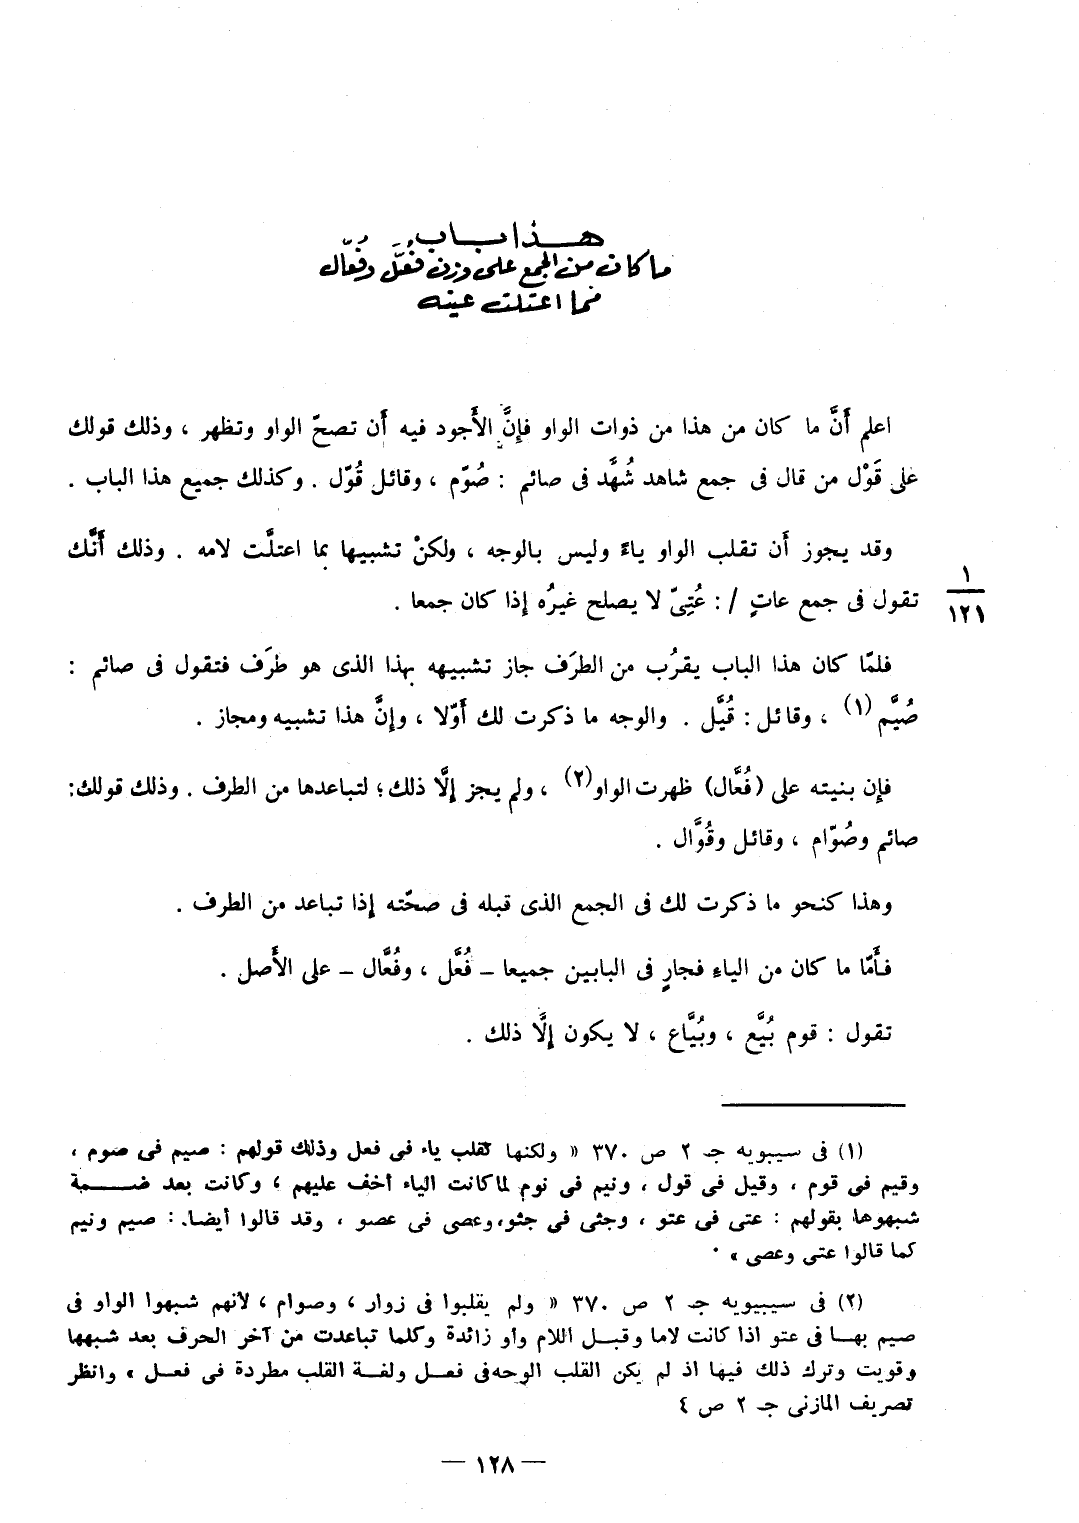 هذا باب
ما كان من الجمع على وزن فُعَّل وفُعَّال
مما اعتلت عينه
اعلم أَنَّ ما كان من هذا من ذوات الواو فإِنَّ الأَجود فيه أَن تصحّ الواو وتظهر ، وذلك قولك
على قَوْل من قال فى جمع شاهد شُهَّد فى صائم : صُوّم ، وقائل قُوّل . وكذلك جميع هذا الباب .
وقد يجوز أَن تقلب الواو ياءً وليس بالوجه ، ولكنْ تشبيها بما اعتلَّت لامه . وذلك أَنَّك
تقول فى جمع عاتٍ / : عُتِىّ لا يصلح غيرُه إذا كان جمعا .
١
١٢١
فلمّا كان هذا الباب يقرُب من الطرَف جاز تشبيهه بهذا الذى هو طرَف فتقول فى صائم :
صُيَّم (١) ، وقائل : قُيَّل . والوجه ما ذكرت لك أوّلا ، وإنَّ هذا تشبيه ومجاز .
فإن بنيته على (فُعَّال) ظهرت الواو (٢) ، ولم يجز إلَّا ذلك ؛ لتباعدها من الطرف . وذلك قولك:
صائم وصُوّام ، وقائل وقُوَّال .
وهذا كنحو ما ذكرت لك فى الجمع الذى قبله فى صحّته إذا تباعد من الطرف .
فأَمّا ما كان من الياءِ فجارٍ فى البابين جميعا – فُعَّل ، وفُعَّال – على الأَصل .
تقول : قوم بُيَّع ، وبُيَّاع ، لا يكون إلَّا ذلك .
(١) فى سيبويه جـ ٢ ص ٣٧٠ « ولكنها تقلب ياء فى فعل وذلك قولهم : صيم فى صوم ،
وقيم فى قوم ، وقيل فى قول ، ونيم فى نوم لما كانت الياء أخف عليهم ؛ وكانت بعد ضــمة
شبهوها بقولهم : عتى فى عتو ، وجثى فى جثو، وعصى فى عصو ، وقد قالوا أيضا. : صيم ونيم
كما قالوا عتى وعصى » ٠
(٢) فى سيبيويه جـ ٢ ص ٣٧٠ « ولم يقلبوا فى زوار ، وصوام ، لأنهم شبهوا الواو فى
صيم بهـا فى عتو اذا كانت لاما وقبـل اللام واو زائدة وكلما تباعدت من آخر الحرف بعد شبهها
وقويت وترك ذلك فيها اذ لم يكن القلب الوجه فى فعـل ولغـة القلب مطردة فى فعـل » وانظر
تصريف المازنى جـ ٢ ص ٤
— ١٢٨ —